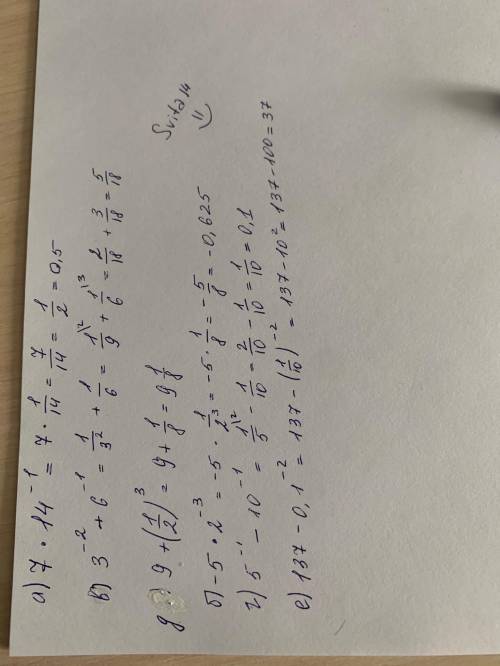 Svita14
а) 7 · 14⁻¹ = 7 · 1/14 = 7/14 = 1/2 = 0,5
в) 3⁻² + 6⁻¹ = 1/3² + 1/6 = 1\²/9 + 1\³/6 = 2/18 + 3/18 = 5/18
д 9 + (1/2)³ = 9 + 1/8 = 9 1/8
б) -5 · 2⁻³ = -5 · 1/2³ = -5 · 1/8 = -5/8 = -0,625
г) 5⁻¹ - 10⁻¹ = 1\²/5 - 1/10 = 2/10 - 1/10 = 1/10 = 0,1
е) 137 - 0,1⁻² = 137 - (1/10)⁻² = 137 - 10² = 137 - 100 = 37